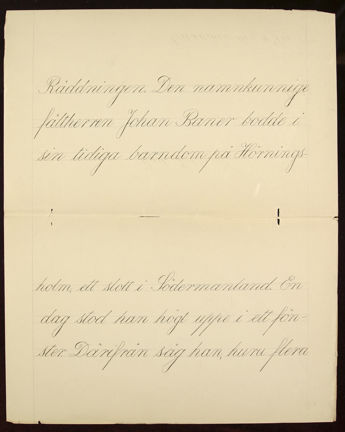 Räddningen. Den namnkunnige
fältherren Johan Baner bodde i
sin tidiga barndom på Hörnings-
holm, ett slott i Södermanland. En
dag stod han högt uppe i ett fön-
ster. Därifrån såg han, huru flera